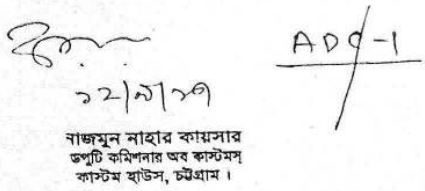 ADC-1
নাজমুন নাহার কায়সার
ডেপুটি কমিশনার অব কাস্টমস্
কাস্টম হাউস, চট্টগ্রাম ।